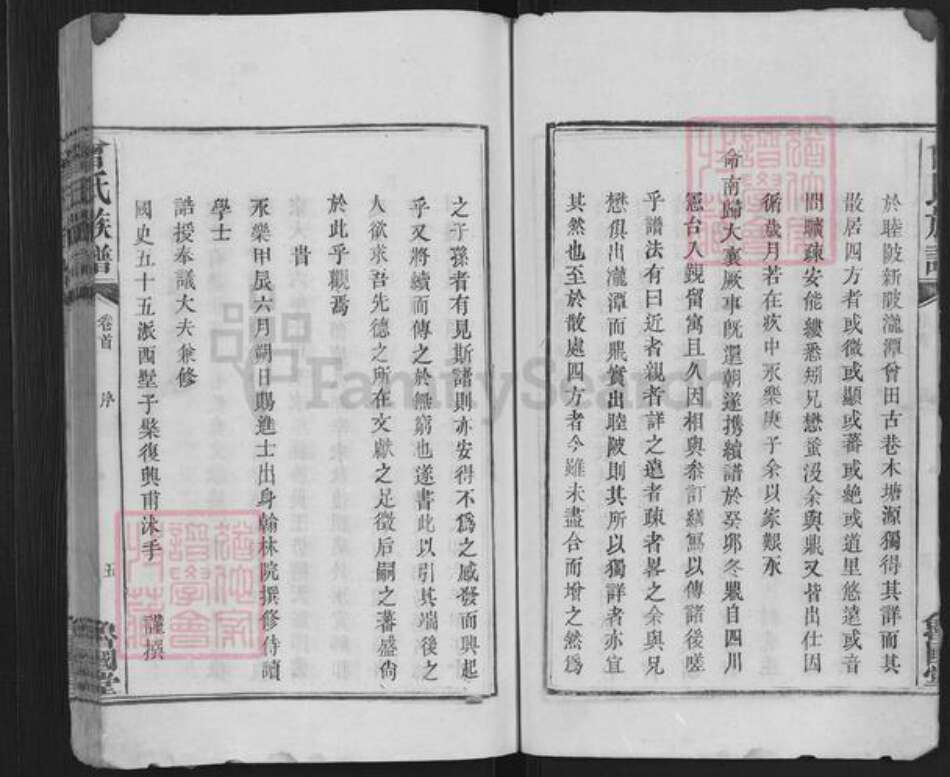 於睦陂新陂瀧潭曾田古巷木塘源獨得其詳而其
散居四方者或微或顯或蕃或絶或道里悠遠或音
問曠疎安能縷悉矧兄懋蚤沒余與鼎又皆出仕因
循歲月若在疚中永樂庚子余以家艱永
命南歸大襄厥事旣還朝遂携續譜於癸卯冬鼎自四川
憲台入覲留寓且久因相與叅訂繕寫以傳諸後嗟
乎譜法有曰近者親者詳之遠者疎者畧之余與兄
懋俱出瀧潭而鼎實出睦陂則其所以獨詳者亦宜
其然也至於散處四方者今雖未盡合而增之然爲
之子孫者有見斯譜則亦安得不爲之感發而興起
乎又將續而傳之於無窮也遂書此以引其端後之
人欲求吾先德之所在文獻之足徵后嗣之蕃盛尙
於此乎觀焉
旹
永樂甲辰六月朔日賜進士出身翰林院撰修侍讀
學士
誥授奉議大夫兼修
國史五十五派西墅子棨復興甫沐手 謹撰
曾氏族譜 卷首 序 五 魯國堂
FamilySearch